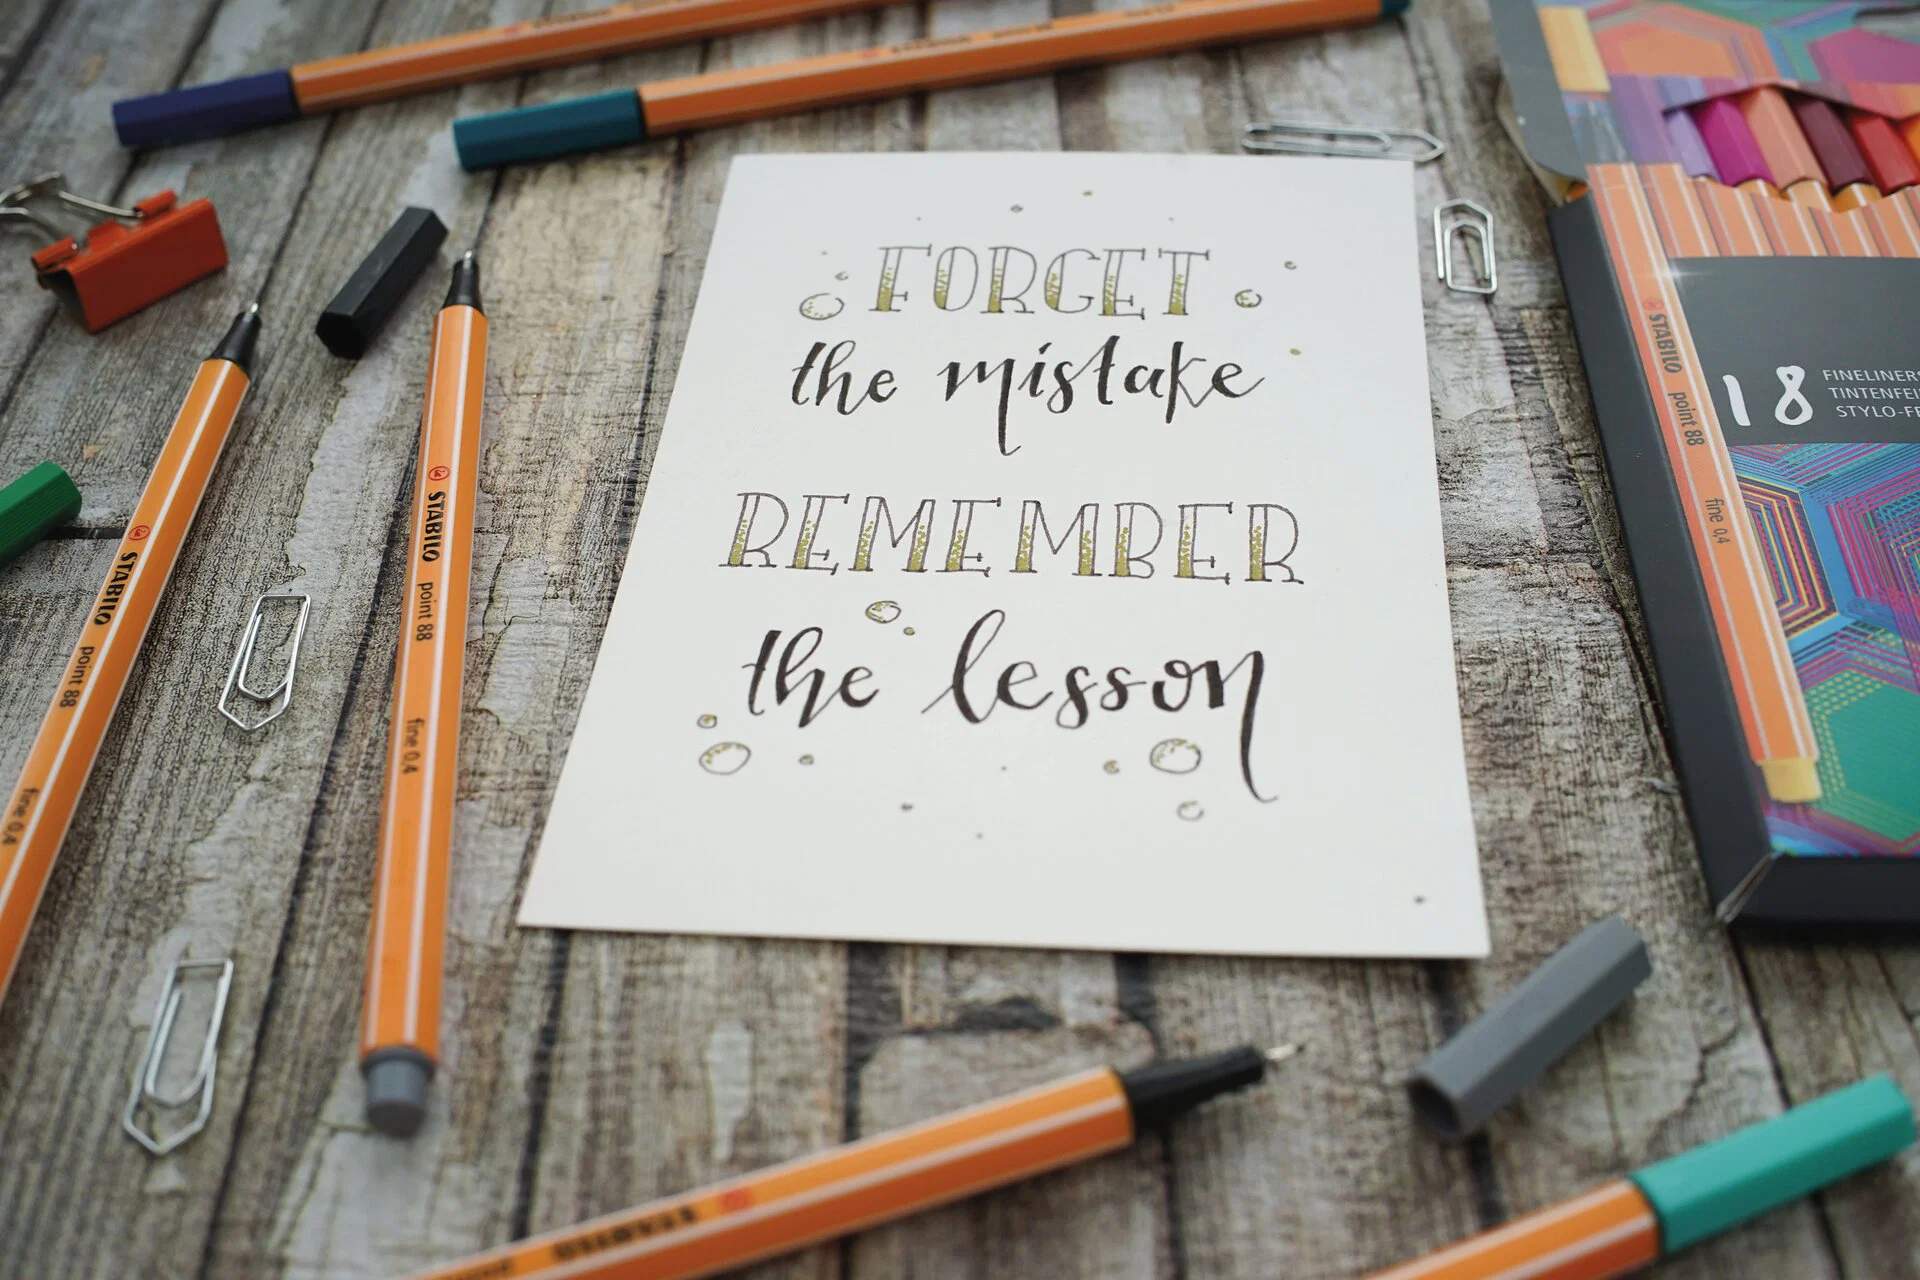 FORGET
the mistake
REMEMBER
the lesson
STABILO point 88 fine 0,4
STABILO point 88 fine 0,4
STABILO point 88 fine 0,4
18
FINELINERS
STABILO